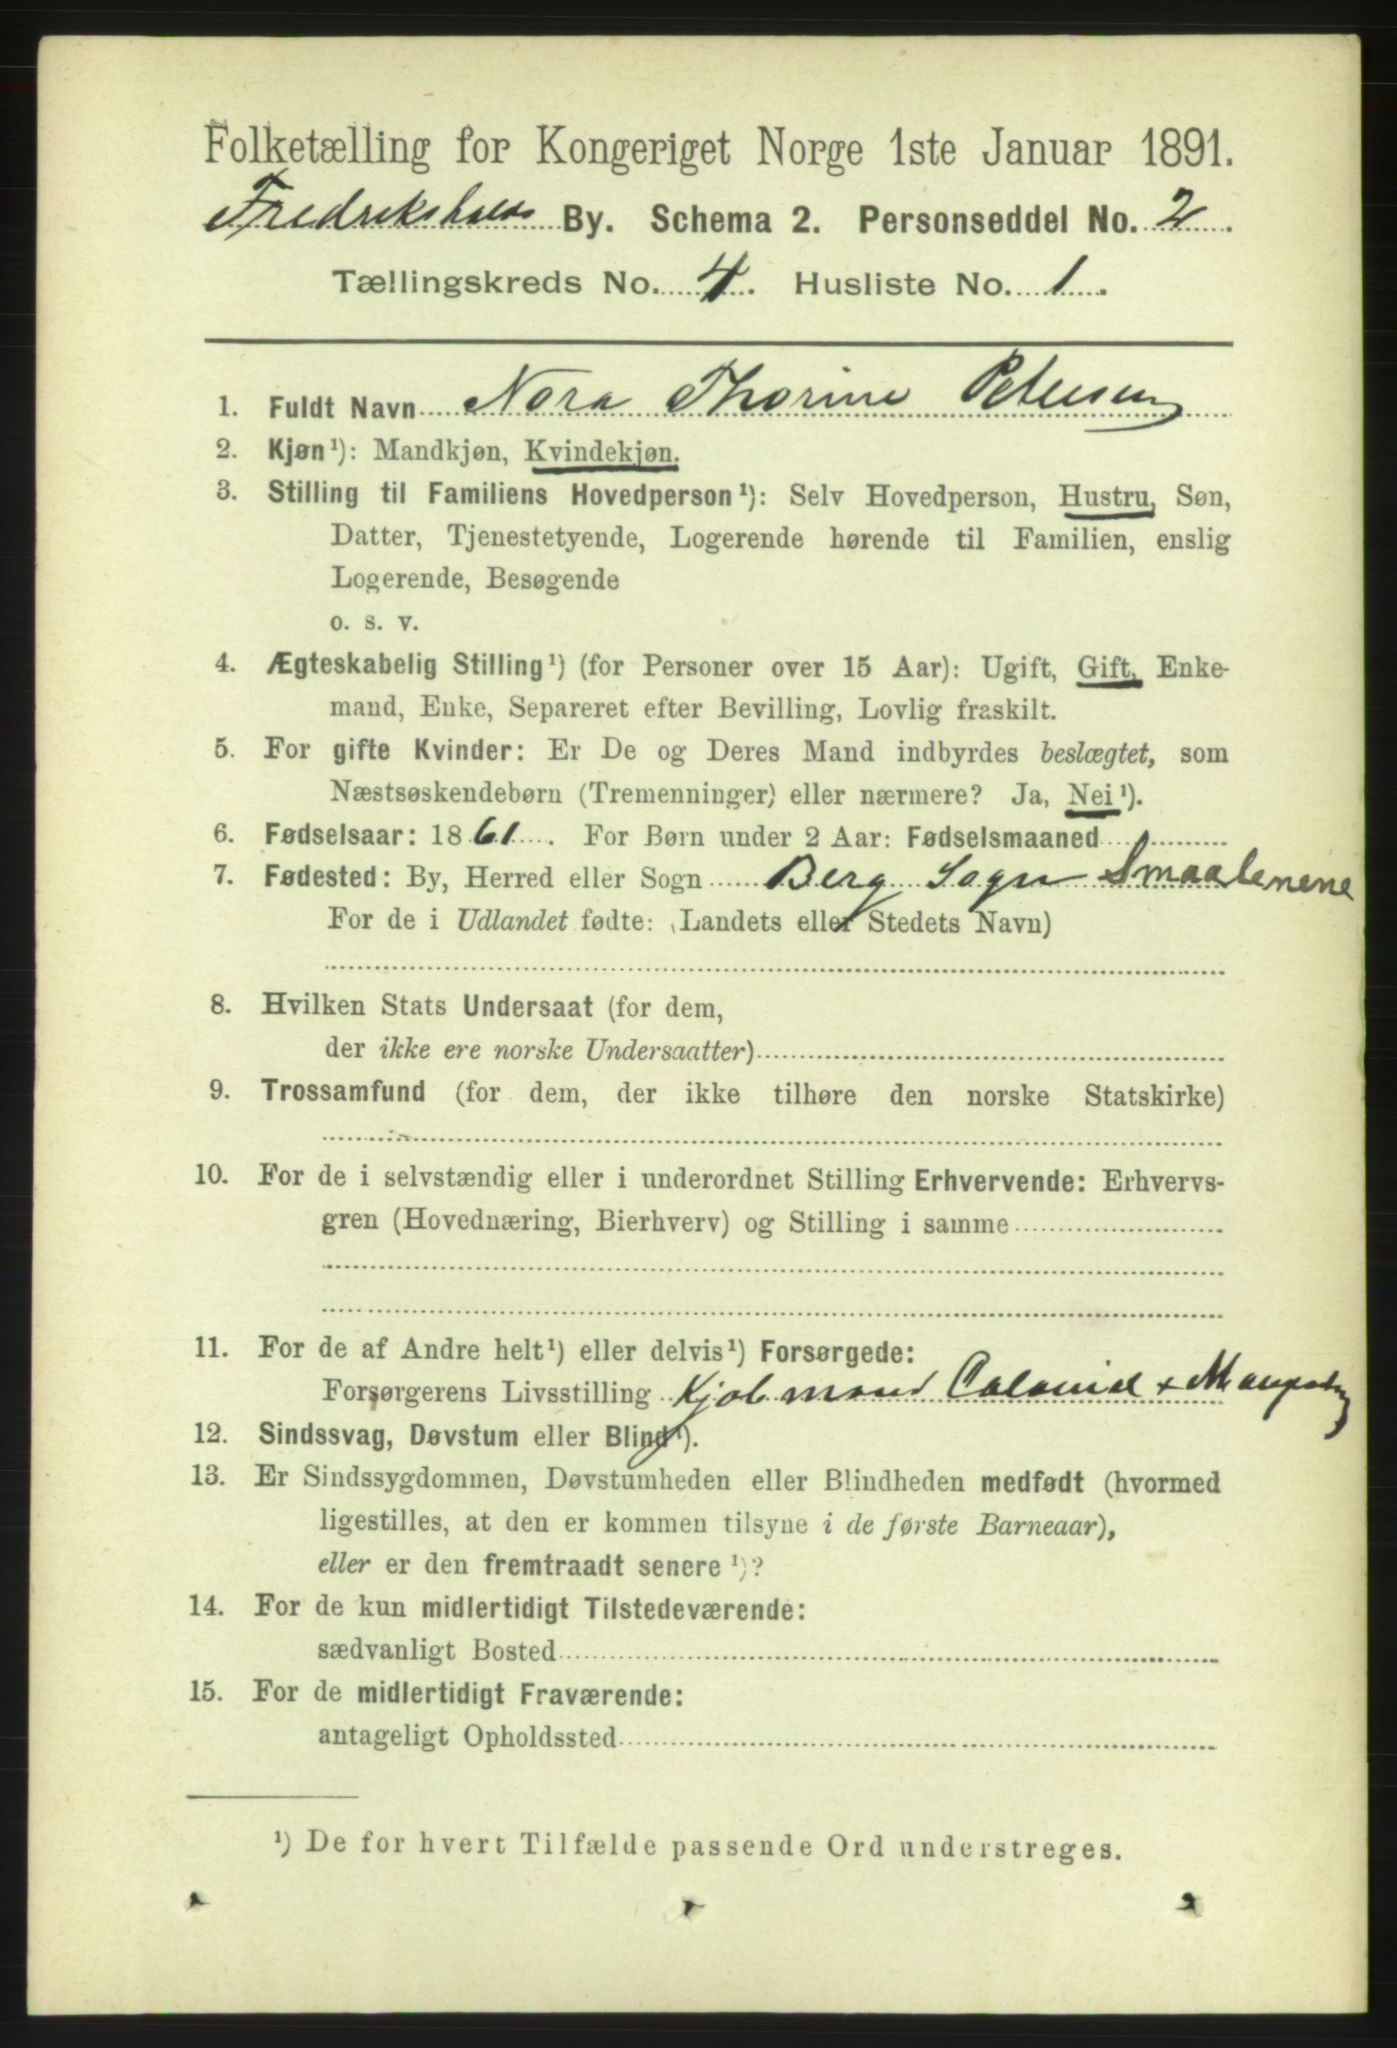 Folketælling for Kongeriget Norge 1ste Januar 1891.
Fredrikshalds By. Schema 2. Personseddel No. 2.
Tællingskreds No. 4. Husliste No. 1.
1. Fuldt Navn Nora Thorine Petersen
2. Kjøn¹): Mandkjøn, Kvindekjøn.
3. Stilling til Familiens Hovedperson¹): Selv Hovedperson, Hustru, Søn,
Datter, Tjenestetyende, Logerende hørende til Familien, enslig
Logerende, Besøgende
o. s. v.
4. Ægteskabelig Stilling¹) (for Personer over 15 Aar): Ugift, Gift, Enke-
mand, Enke, Separeret efter Bevilling, Lovlig fraskilt.
5. For gifte Kvinder: Er De og Deres Mand indbyrdes beslægtet, som
Næstsøskendebørn (Tremenninger) eller nærmere? Ja, Nei¹).
6. Fødselsaar: 1861. For Børn under 2 Aar: Fødselsmaaned
7. Fødested: By, Herred eller Sogn Berg Sogn Smaalenene
For de i Udlandet fødte: (Landets eller Stedets Navn)
8. Hvilken Stats Undersaat (for dem,
der ikke ere norske Undersaatter)
9. Trossamfund (for dem, der ikke tilhøre den norske Statskirke)
10. For de i selvstændig eller i underordnet Stilling Erhvervende: Erhvervs-
gren (Hovednæring, Bierhverv) og Stilling i samme
11. For de af Andre helt¹) eller delvis¹) Forsørgede:
Forsørgerens Livsstilling Kjøbmand Colonial +
12. Sindssvag, Døvstum eller Blind¹).
13. Er Sindssygdommen, Døvstumheden eller Blindheden medfødt (hvormed
ligestilles, at den er kommen tilsyne i de første Barneaar),
eller er den fremtraadt senere¹)?
14. For de kun midlertidigt Tilstedeværende:
sædvanligt Bosted
15. For de midlertidigt Fraværende:
antageligt Opholdssted
¹) De for hvert Tilfælde passende Ord understreges.